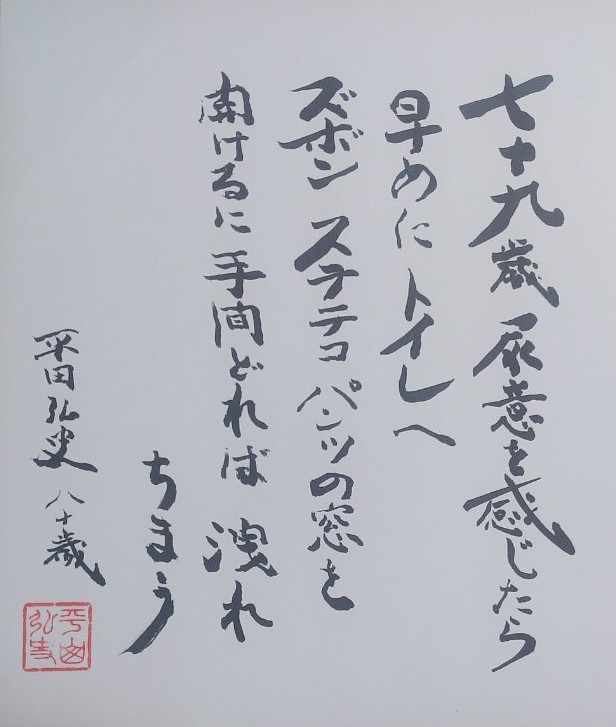 七十九歳 尿意を感じたら
早めに トイレへ
ズボン ステテコ パンツの窓を
開けるに 手間どれば 洩れ
ちまう
平田弘史 八十歳
平田弘史